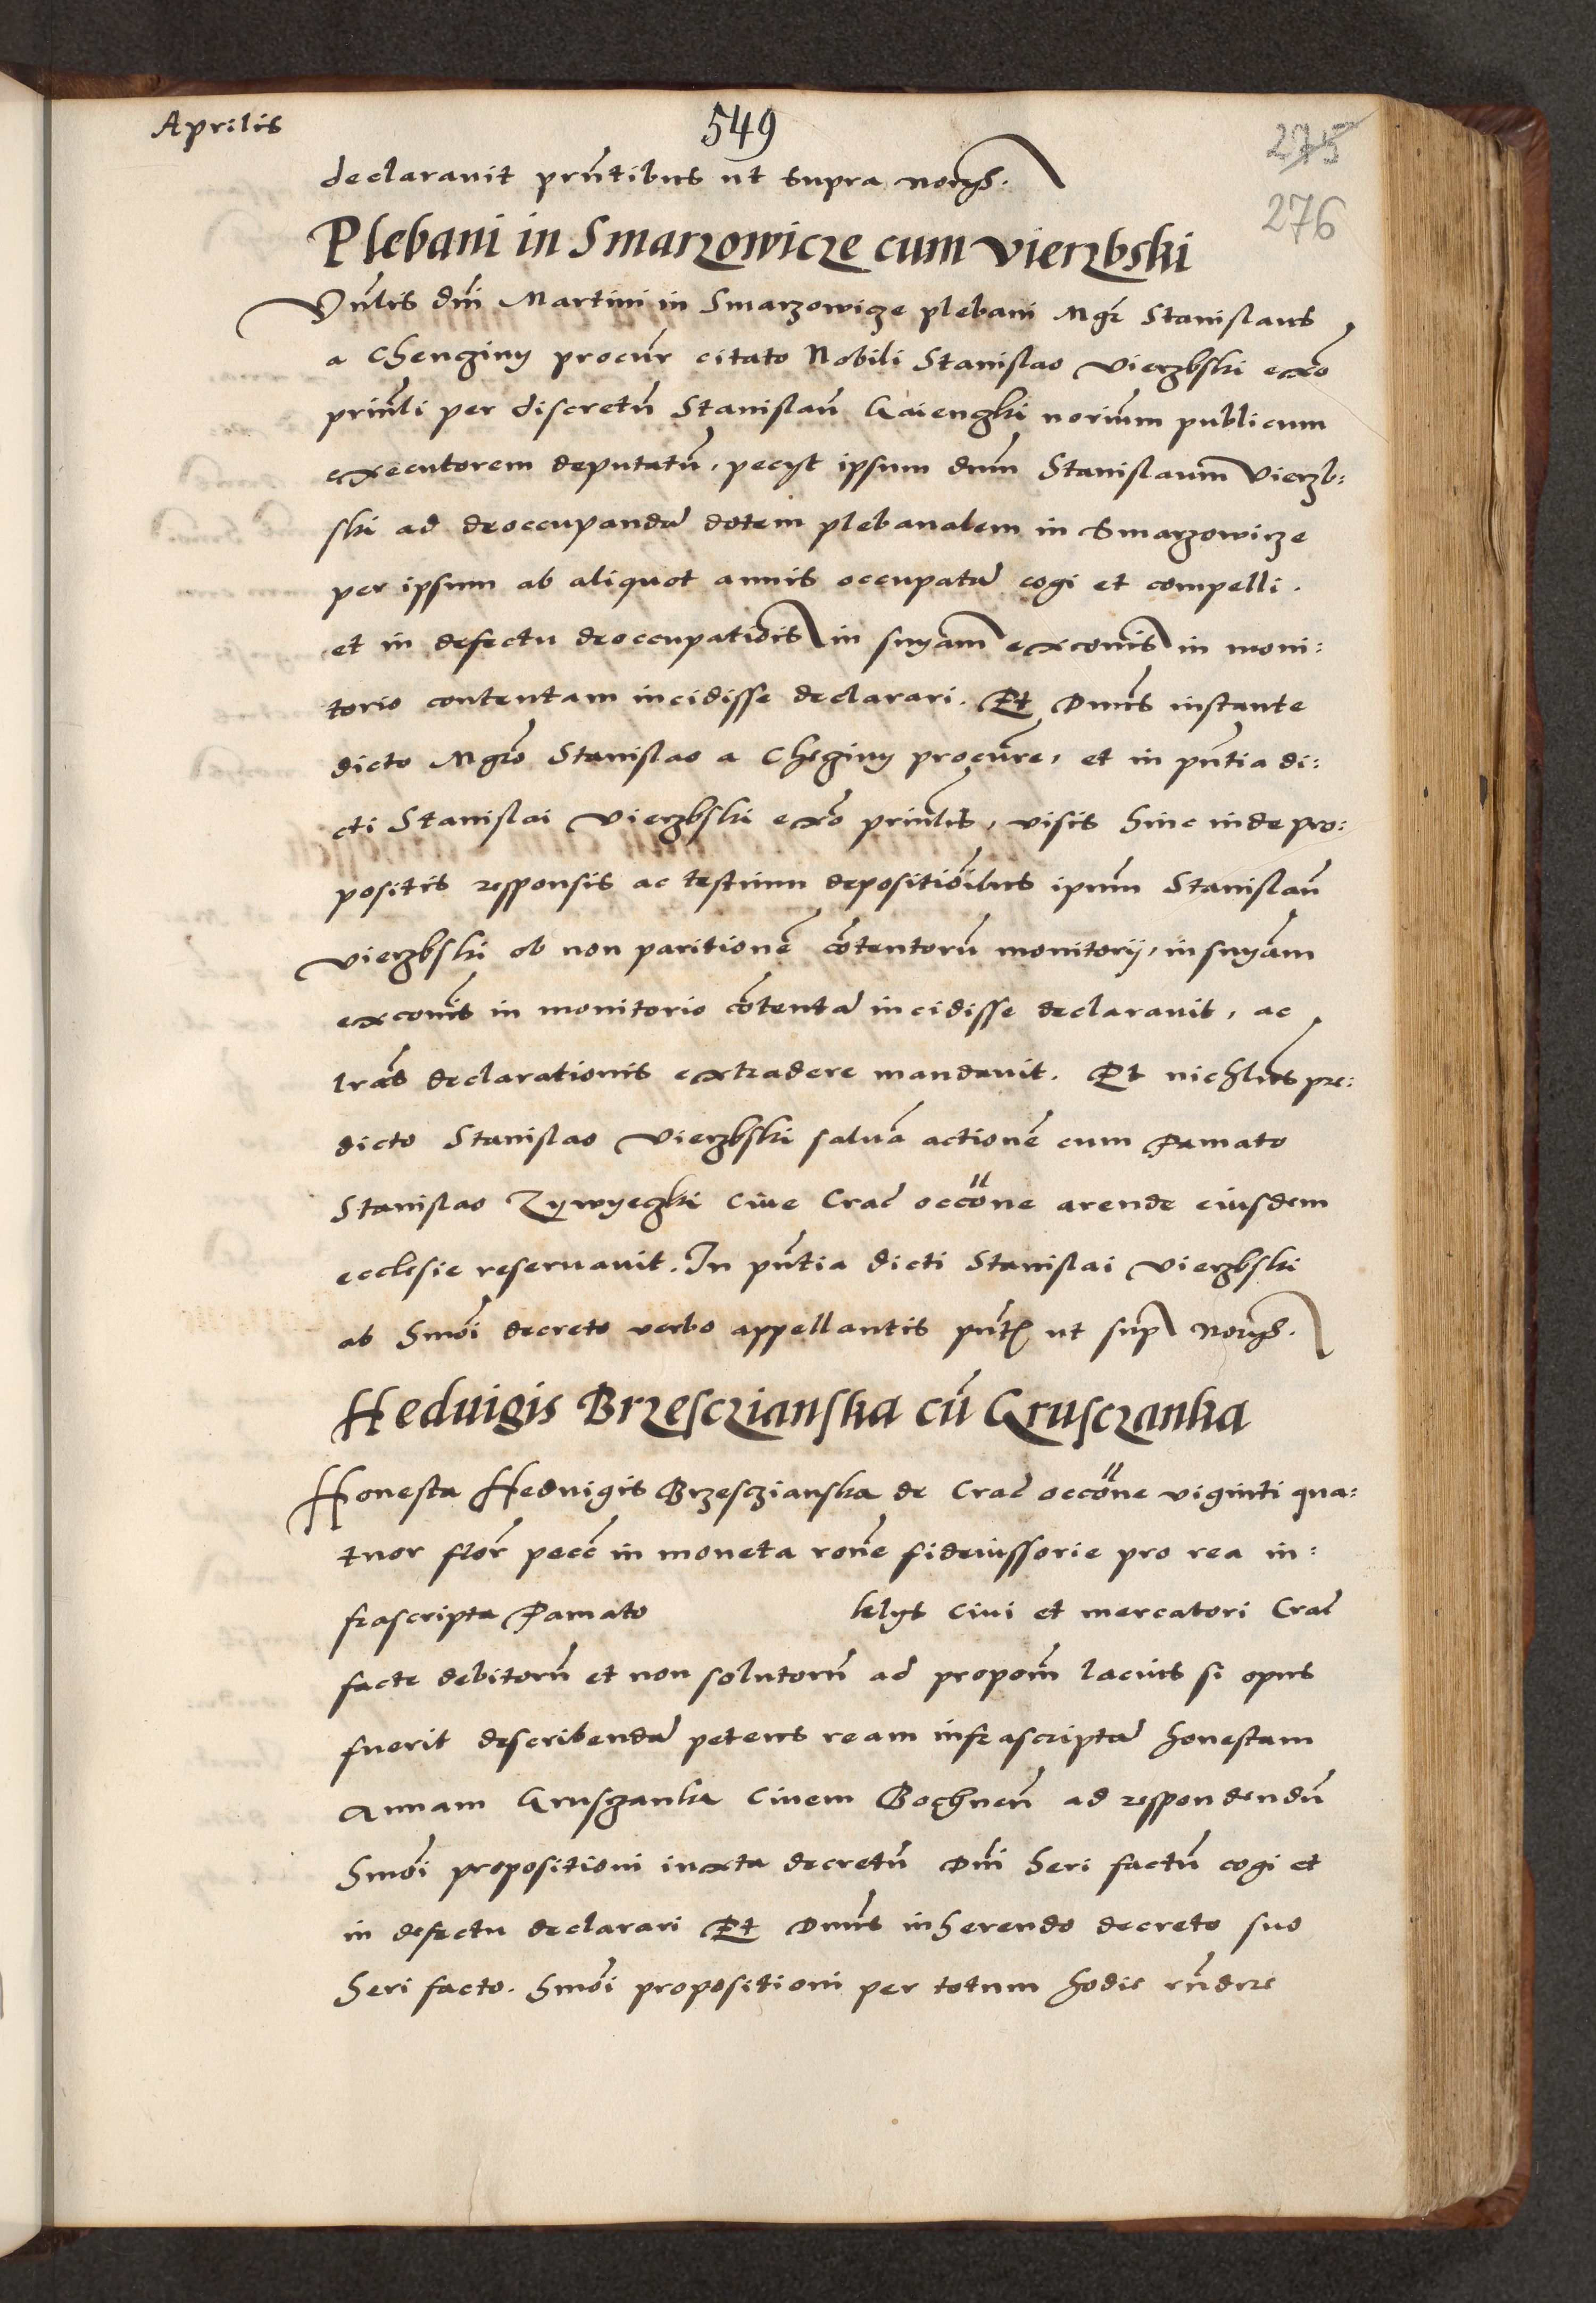 Aprilis
549
275
276
declaravit pñtibus ut supra norijs.
Plebani in Smarzowicze cum vierzbski
Vnlis dñi Martini in Smarzowicze plebani Mgr Stanislaus
a Chenginy procur citato Nobili Stanislao vierzbski exõ
prinli per discretũ Stanislaũ Gaiengki norium publicum
executorem deputatũ, pecyt ipsum dnm Stanislaum vierzb:
ski ad deoccupandã dotem plebanalem in Smarzowicze
per ipsum ab aliquot annis occupatã cogi et compelli.
et in defectu deoccupatiõis in snyam exconis in moni:
torio contentam incidisse declarari. Et Dnus instante
dicto Mgro Stanislao a Chẽginy procure, et in pñtia di:
cti Stanislai vierzbski exõ prinlis, visis hinc inde pro:
positis responsis ac testium depositiõibus ipũm Stanislaũ
vierzbski ob non paritionẽ cõtentorũ monitorij, in snyam
exconis in monitorio cõtentã incidisse declaravit, ac
lrãs declarationis extradere mandavit. Et nichlus pre:
dicto Stanislao vierzbski salvã actionẽ cum Famato
Stanislao Zywyeczki Cive Crac occõne arende eiusdem
ecclesie reservavit. In pñtia dicti Stanislai vierzbski
ab hmõi decreto verbo appellantis pñt ut sup norijs.
Hedvigis Brzesczianska cũ Grusczanka
Honesta Hedvigis Brzesczianska de Crac occõne viginti qua:
tuor flor pecc in moneta rone fideiussorie pro rea in:
frascripta Famato klyt Civi et mercatori Crac
facte debitorũ et non solutorũ ad propom lacius si opus
fuerit describendã petens ream infrascriptã honestam
Annam Grusczanka Civem Bochnen ad respondendũ
hmõi propositioni iuxta decretũ Dñi heri factũ cogi et
in defectu declarari Et Dnus inherendo decreto suo
heri facto. hmõi propositioni per totum hodie rñdere